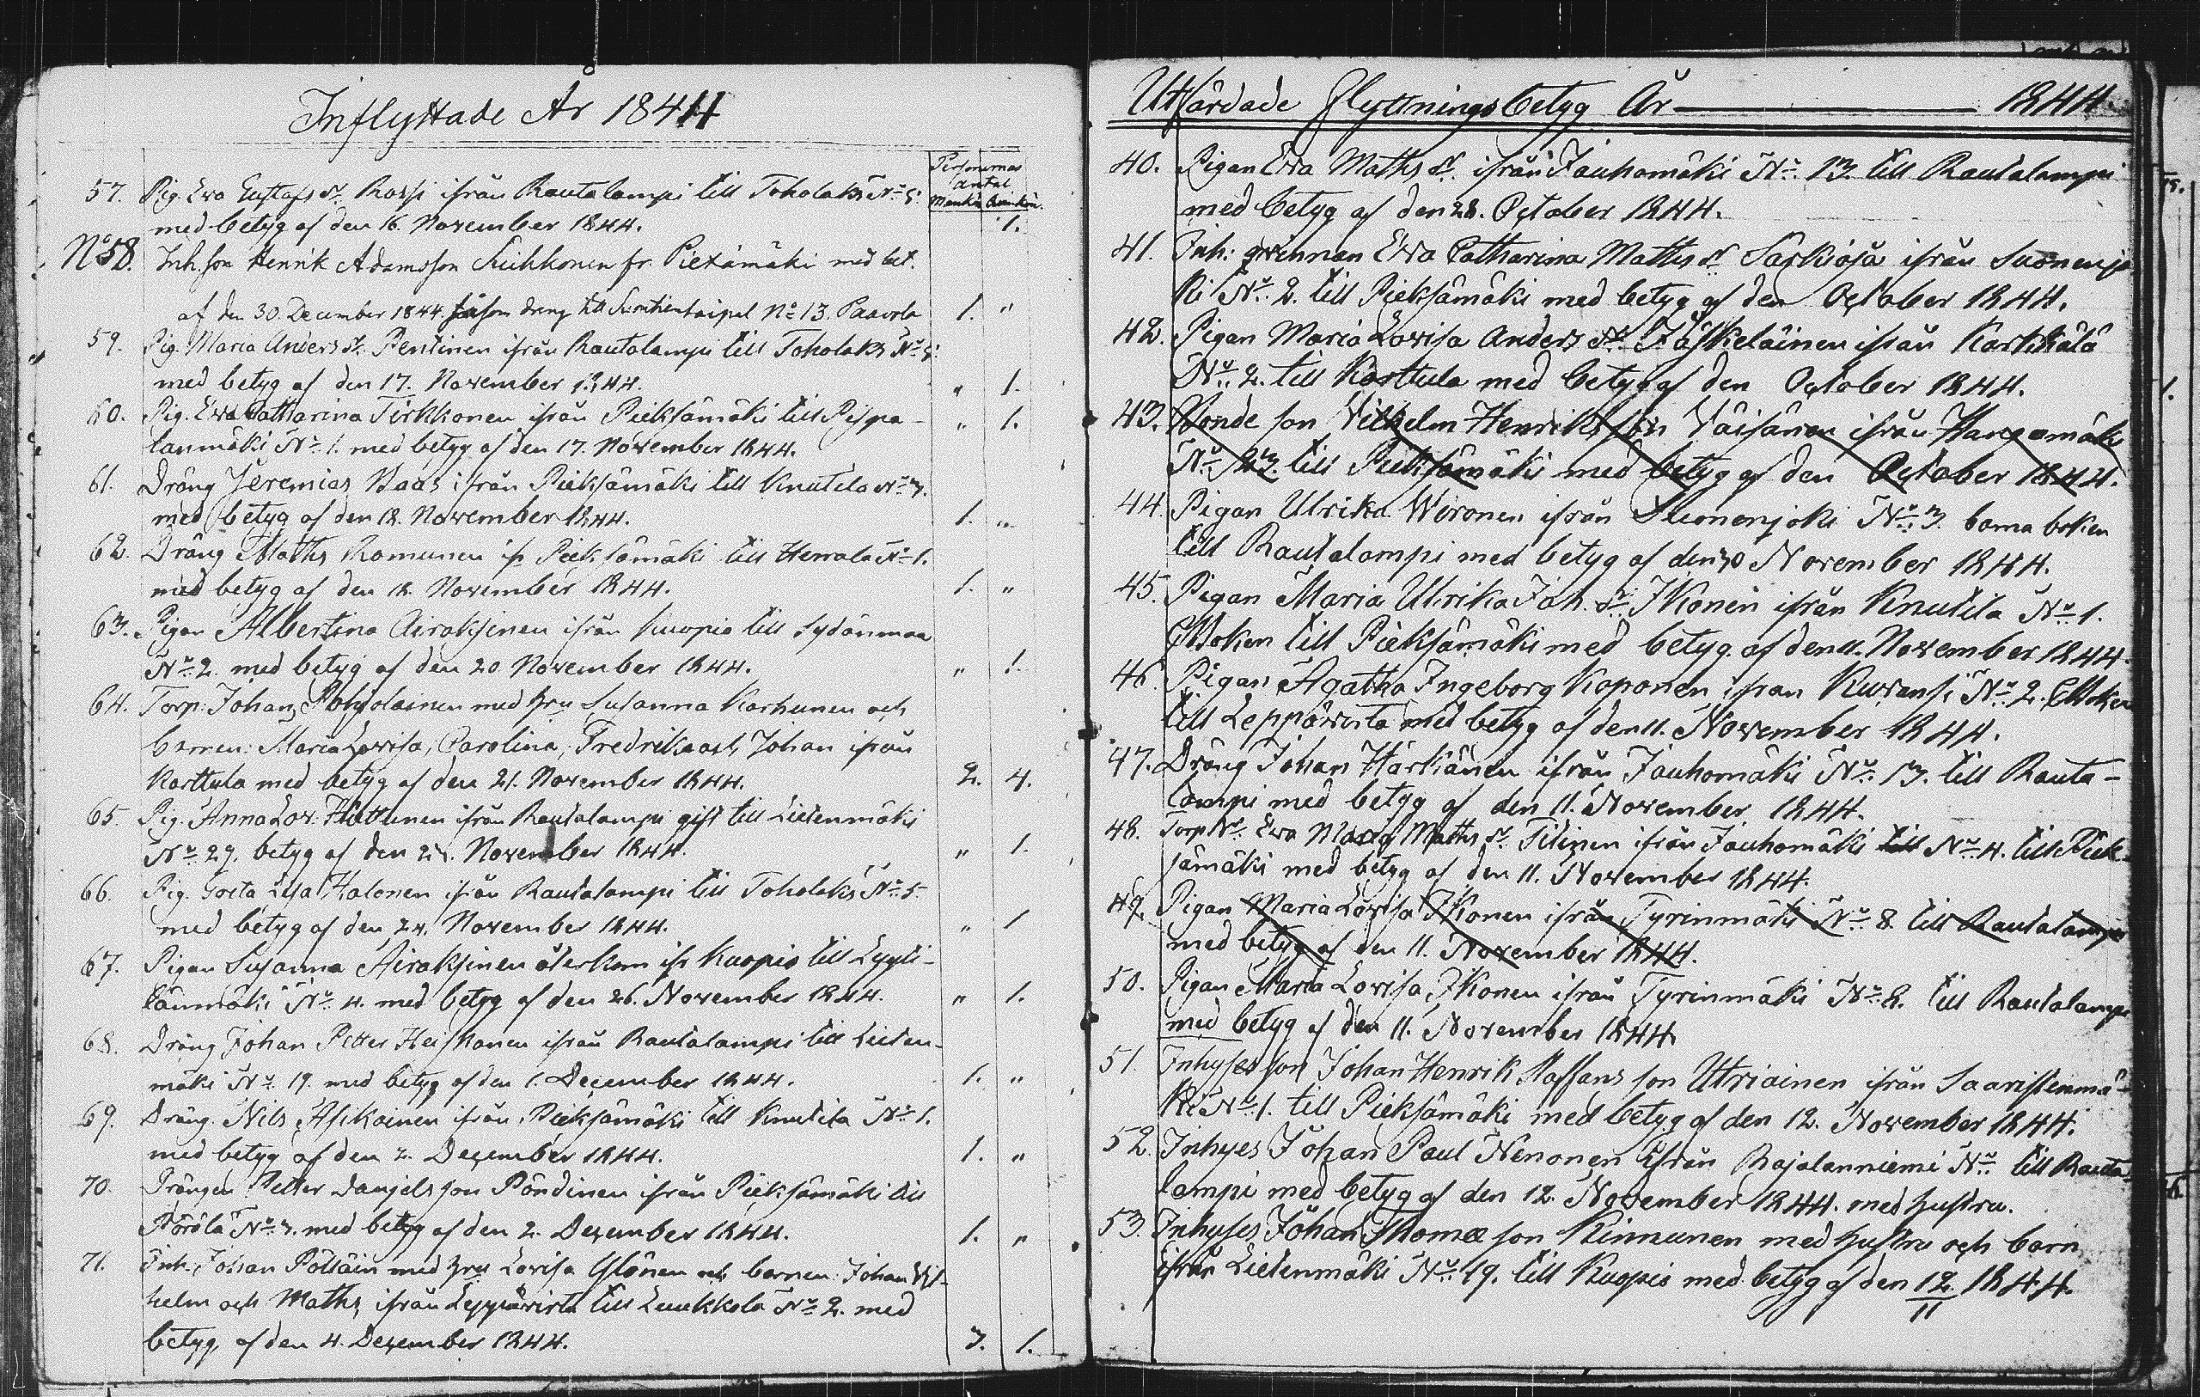 Inflyttade År 1844
Personernas
antal
Mankön Qvinkön.
57. Pig. Eva Gustafs dr Rossi ifrån Rautalampi till Toholaks No 5.
med betyg af den 16. November 1844. 1.
No 58. Inh. son Henrik Adamsson fr. Piexämäki med bet.
af den 30. December 1844. såsom dreng till No 13. Paavola 1. "
59. Pig. Maria Anders dr Pentinen ifrån Rautalampi till Toholaks No 5.
med betyg af den 17. November 1844. " 1.
60. Pig. Eva Catharina Tirkkonen ifrån Pieksämäki till Pispa-
lanmäki No 1. med betyg af den 17. November 1844. " 1.
61. Dräng Jeremias ifrån Pieksämäki till Knutila No 3.
med betyg af den 18. November 1844. 1. "
62. Dräng Maths Romunen ifr Pieksämäki till Herrala No 1.
med betyg af den 18. November 1844. 1. "
63. Pigan Albertina Airaksinen ifrån Kuopio till Sydänmaa
No 2. med betyg af den 20 November 1844. " 1.
64. Torp. Johan Pohjolainen med hru Susanna Karhunen och
barnen: Maria Lovisa, Carolina, Fredrika och Johan ifrån
Karttula med betyg af den 21. November 1844. 2. 4.
65. Pig. Anna Lov. Huttunen ifrån Rautalampi gift till Lietenmäki
No 29. betyg af den 24. November 1844. " 1.
66. Pig. Greta Lisa Halonen ifrån Rautalampi till Toholaks No 5.
med betyg af den 24. November 1844. " 1
67. Pigan Susanna Airaksinen återkom ifr Kuopio till Lyyti-
länmäki No 4. med betyg af den 26. November 1844. " 1.
68. Dräng Johan Petter Heiskanen ifrån Rautalampi till Lieten-
mäki No 19. med betyg af den 1. December 1844. 1. "
69. Dräng. Nils Asikainen ifrån Pieksämäki till Knutila No 1.
med betyg af den 2. December 1844. 1. "
70. Drängen Petter Daniels son Pöndinen ifrån Pieksämäki till
Pörölä No 3. med betyg af den 2. December 1844. 1. "
71. Inh. Johan Pölläin med hru Lovisa Ylönen och barnen: Johan Vil-
helm och Maths, ifrån Leppävirta till Luukkola No 2. med
betyg af den 4. December 1844. 3. 1.
Utfärdade Flyttningsbetyg År 1844.
40. Pigan Eva Maths dr. ifrån Jauhomäki No 13. till Rautalampi
med betyg af den 28. October 1844.
41. Inh: qvinnan Eva Catharina Maths dr Särkiöjä ifrån Suonenjo
ki No 2. till Pieksämäki med betyg af den October 1844.
42. Pigan Maria Lovisa Anders dr Jäskeläinen ifrån Karkkala
No 2. till Karttula med betyg af den October 1844.
43. Bonde son Vilhelm Henriks son Väisänen ifrån Hangomäki
No 23. till Pieksämäki med betyg af den October 1844.
44. Pigan Ulrika Woronen ifrån Suonenjoki No 3. barna boken
till Rautalampi med betyg af den 10 November 1844.
45. Pigan Maria Ulrika Joh. dr. Ikonen ifrån Knutila No 1.
CBoken till Pieksämäki med betyg. af den 11. November 1844.
46. Pigan Agatha Ingeborg Koponen ifrån Kuvansi No 2. CBoken
till Leppävirta med betyg af den 11. November 1844.
47. Dräng Johan Härkänen ifrån Jauhomäki No 13. till Rauta-
lampi med betyg af den 11. November 1844.
48. Torp dr. Eva Maria Maths dr Titinen ifrån Jauhomäki till No 4. till Piek-
sämäki med betyg af den 11. November 1844.
49. Pigan Maria Lovisa Ikonen ifrån Tyrinmäki No 8. till Rautalampi
med betyg af den 11. November 1844.
50. Pigan Maria Lovisa Ikonen ifrån Tyrinmäki No 8. till Rautalampi
med betyg af den 11. November 1844
51. Inhyses son Johan Henrik Staffans son Utriainen ifrån Saaristenmä-
ki No 1. till Pieksämäki med betyg af den 12. November 1844.
52. Inhyes Johan Paul Nenonen ifrån Rajalanniemi No till Rauta-
lampi med betyg af den 12. November 1844. med hustru.
53. Inhyses Johan Thomæ son Kinnunen med hustru och barn
ifrån Lietenmäki No 19. till Kuopio med betyg af den 12/11 1844.